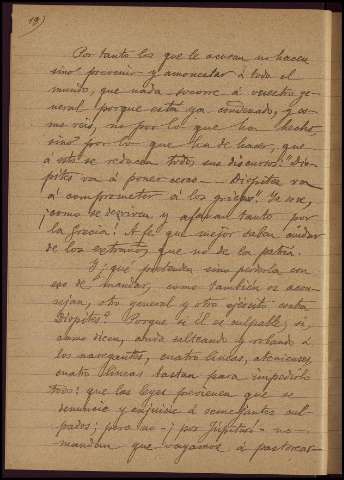 19)
Por tanto los que le acusan no hacen
sino prevenir y amonestar á todo el
mundo, que nada socorre á vuestro ge-
neral porque está ya condenado, y co-
mo veis, no por lo que ha hecho,
sino por lo que ha de hacer, que
á esto se reducen todos sus discursos: "Dio-
pites va á poner cerco — Diopites va
á comprometer á los griegos". Ya se ve,
¡como se desviven y afanan tanto por
la Grecia! A fe que mejor saben cuidar
de los extraños, que no de la patria.
Y ¿qué pretenden sino perderla con
eso de mandar, como también os acon-
sejan, otro general y otro ejército contra
Diopites? Porque si él es culpable, si,
como dicen, anda salteando y robando á
los navegantes, cuatro líneas, atenienses,
cuatro líneas bastan para impedirlo
todo: que las leyes previenen que se
denuncie y enjuicie á semejantes cul-
pados; pero no — ¡por Júpiter! — no
mandan que vayamos á